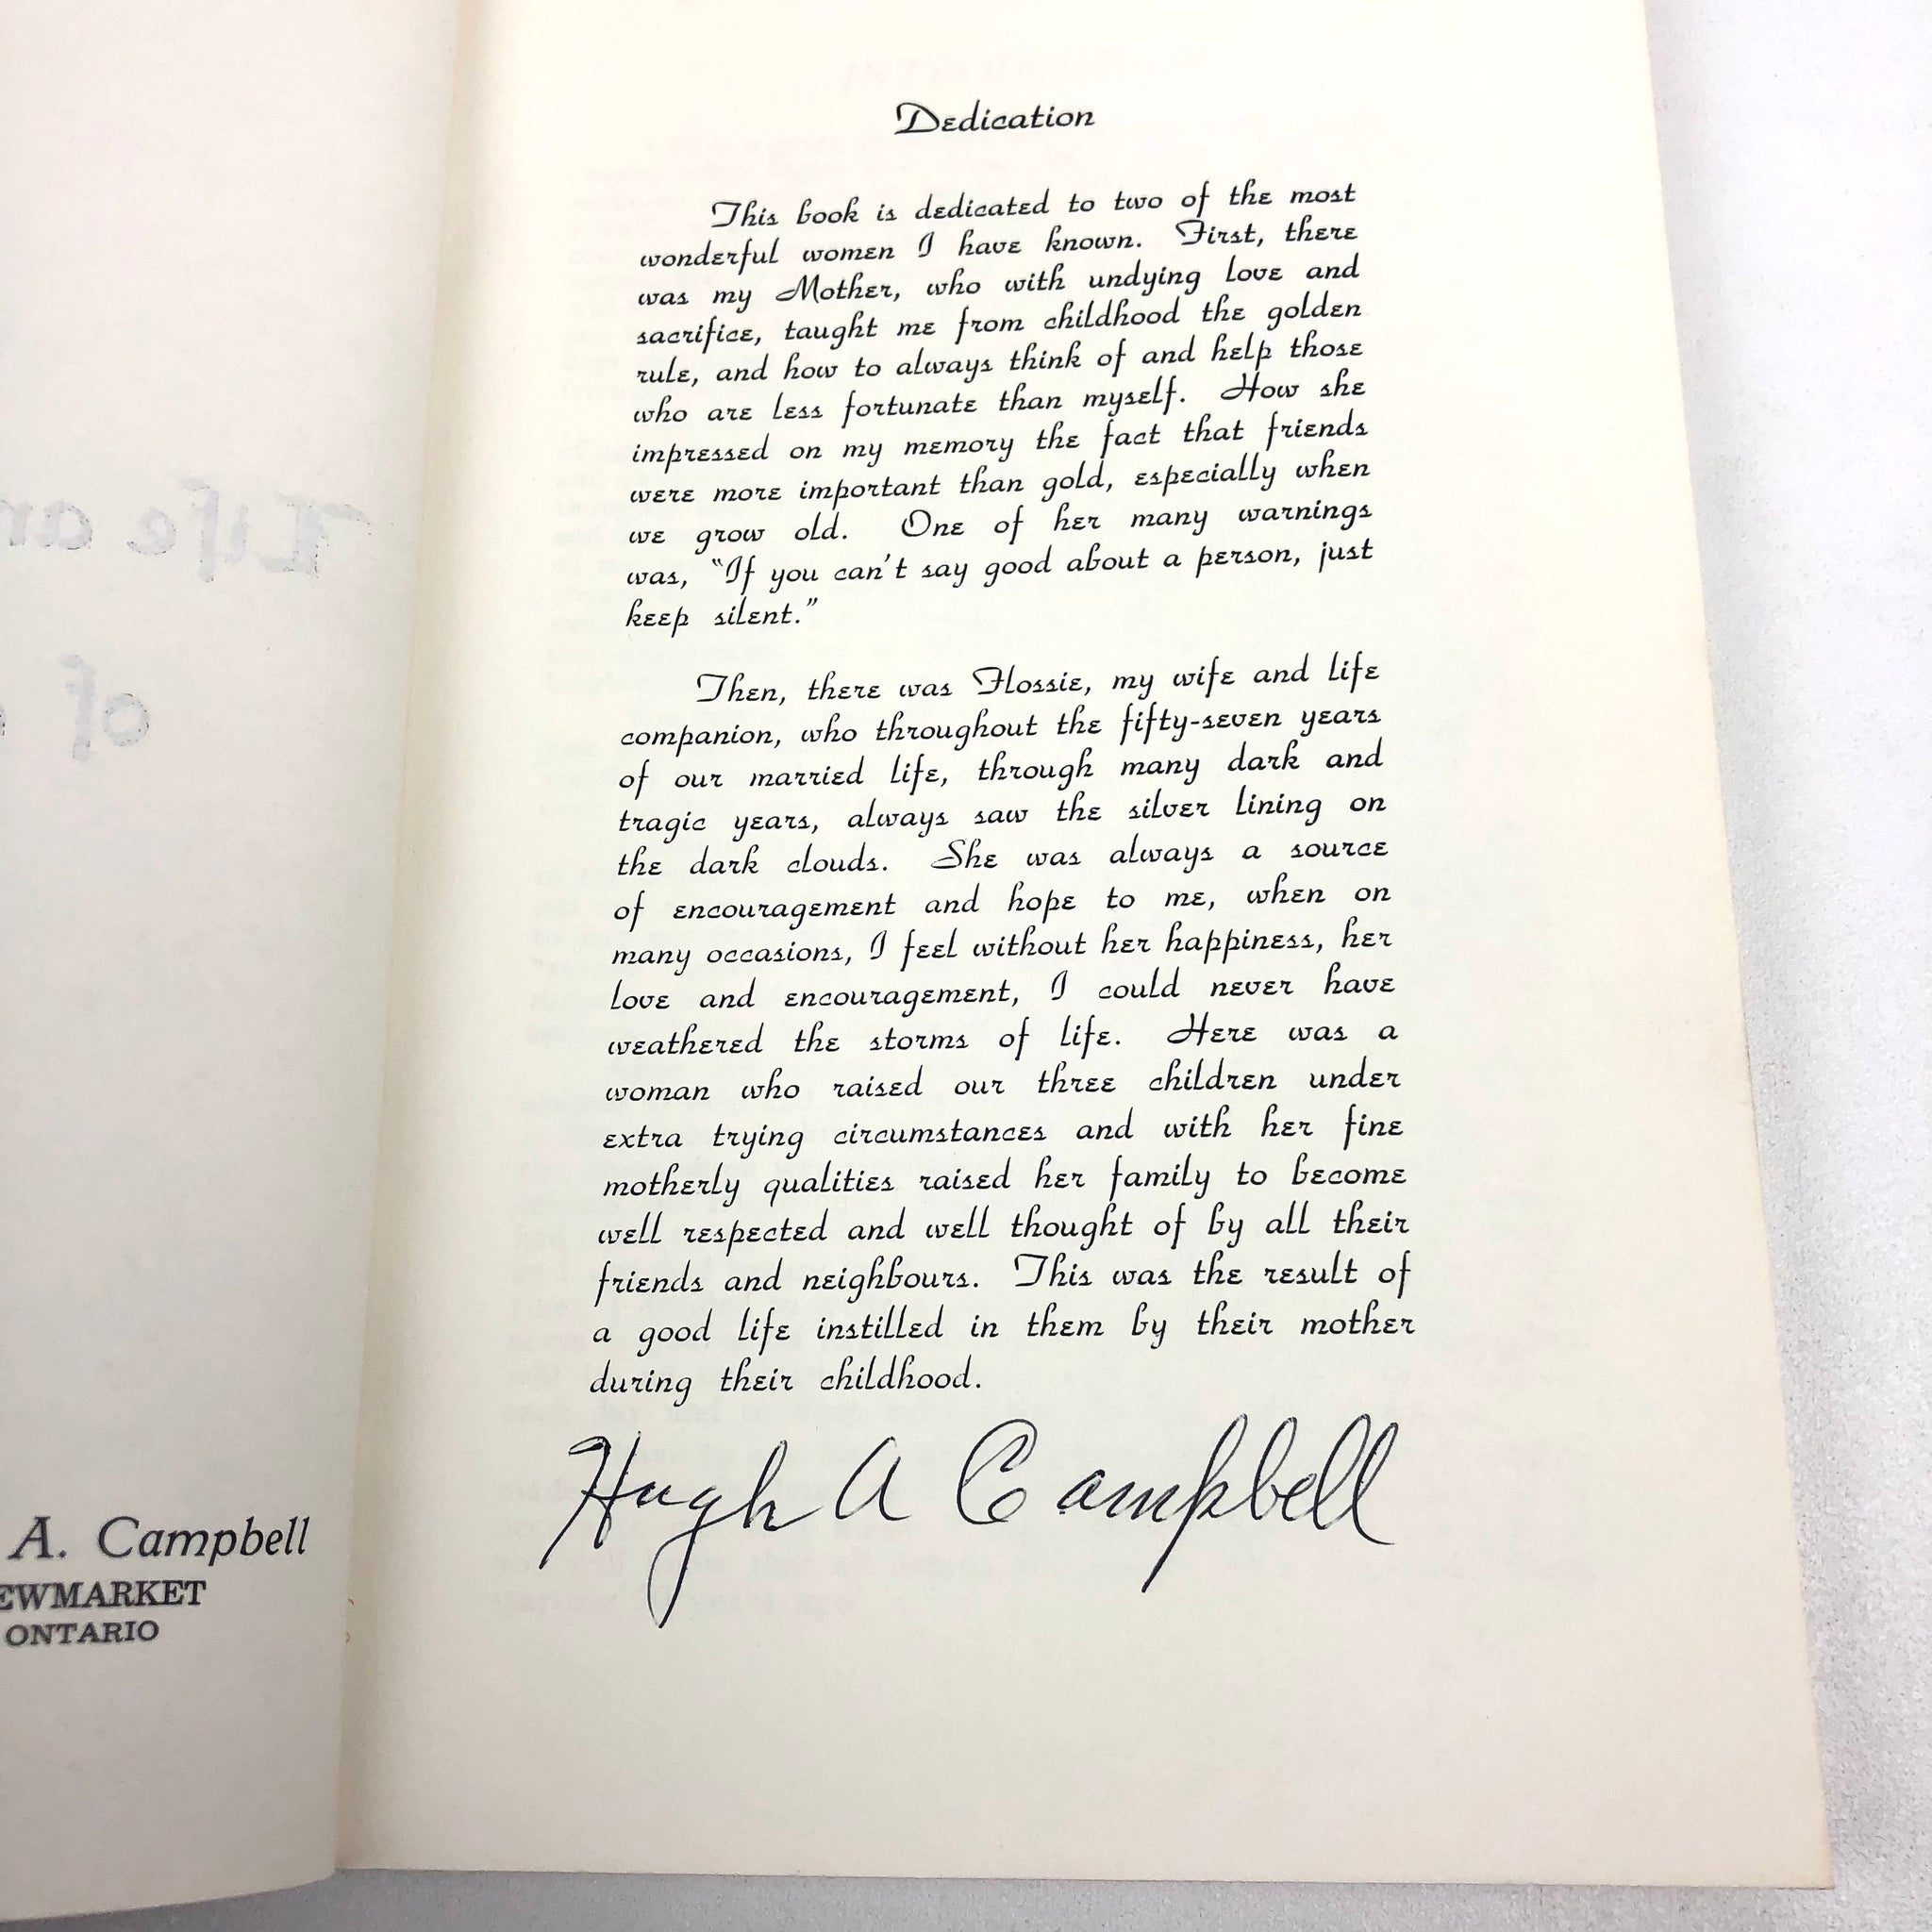 Life an
of
A. Campbell
EWMARKET
ONTARIO
Dedication
This book is dedicated to two of the most
wonderful women I have known. First, there
was my Mother, who with undying love and
sacrifice, taught me from childhood the golden
rule, and how to always think of and help those
who are less fortunate than myself. How she
impressed on my memory the fact that friends
were more important than gold, especially when
we grow old. One of her many warnings
was, "If you can't say good about a person, just
keep silent."
Then, there was Flossie, my wife and life
companion, who throughout the fifty-seven years
of our married life, through many dark and
tragic years, always saw the silver lining on
the dark clouds. She was always a source
of encouragement and hope to me, when on
many occasions, I feel without her happiness, her
love and encouragement, I could never have
weathered the storms of life. Here was a
woman who raised our three children under
extra trying circumstances and with her fine
motherly qualities raised her family to become
well respected and well thought of by all their
friends and neighbours. This was the result of
a good life instilled in them by their mother
during their childhood.
Hugh A Campbell